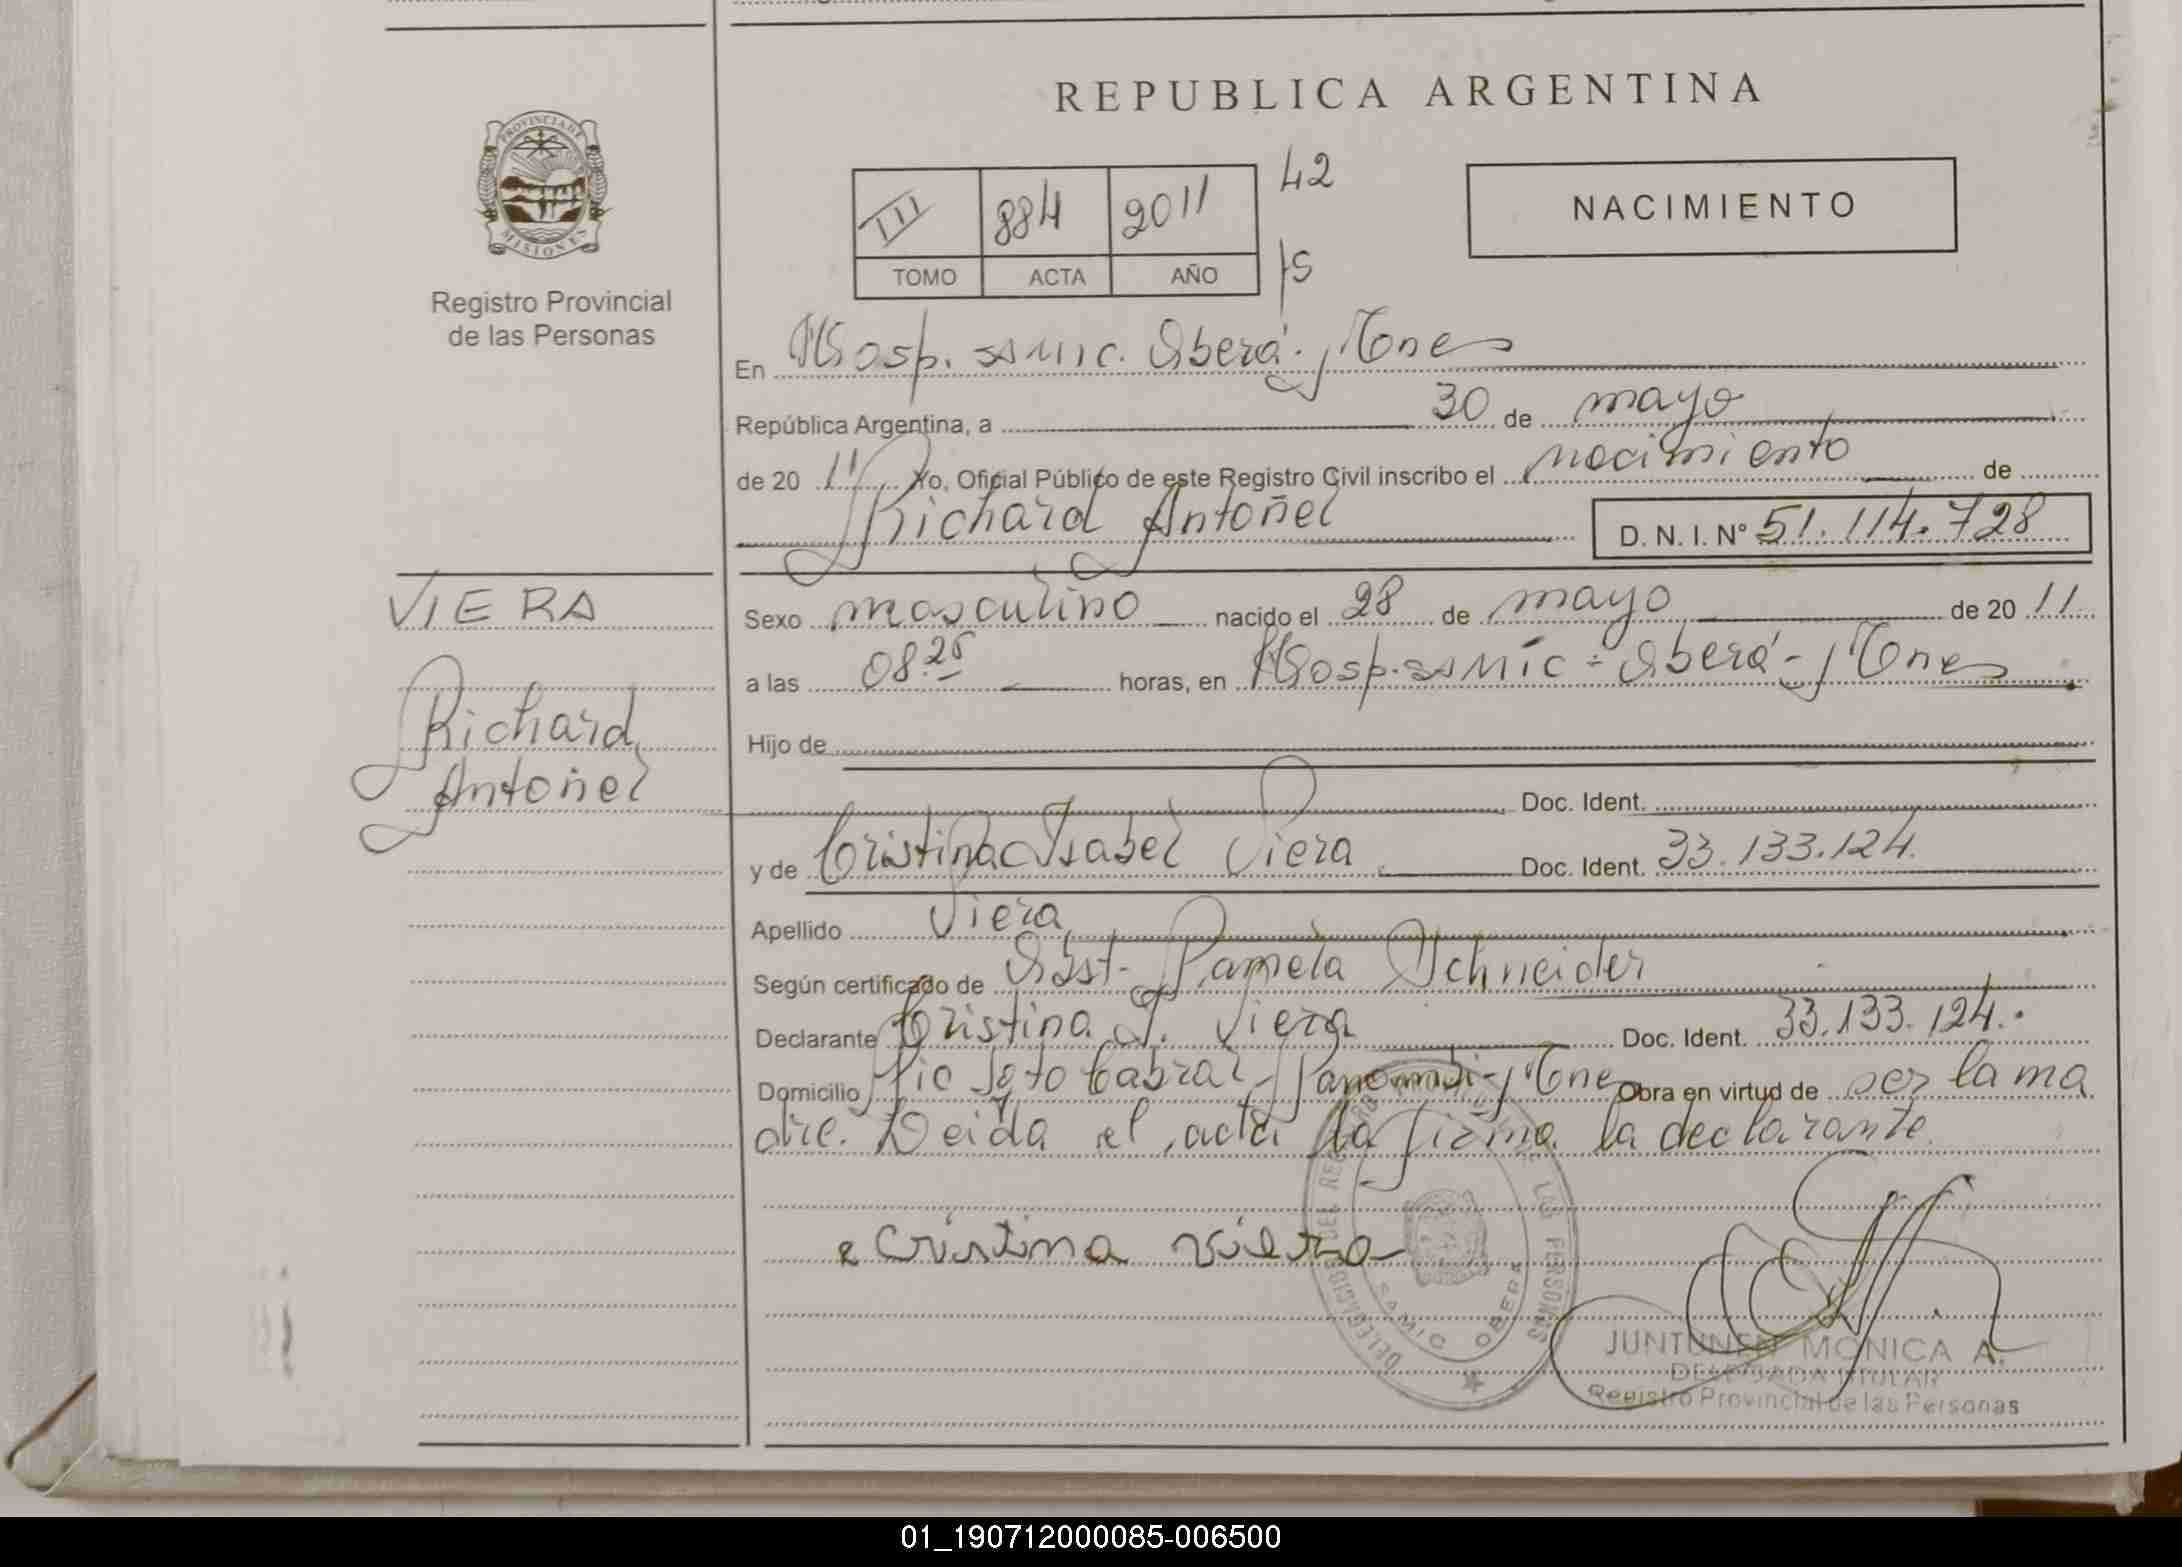 REPUBLICA ARGENTINA
PROVINCIA DE
MISIONES
Registro Provincial
de las Personas
III 884 2011 42
TOMO ACTA AÑO 15
NACIMIENTO
En Hosp. SAMIC. Oberá. Mnes
República Argentina, a 30 de mayo
de 20 11 Yo, Oficial Público de este Registro Civil inscribo el nacimiento de
Richard Antoñel D. N. I. Nº 51.114.728
VIERA
Richard
Antoñel
Sexo masculino nacido el 28 de mayo de 20 11
a las 08.25 horas, en Hosp. SAMIC - Oberá - Mnes
Hijo de
Doc. Ident.
y de Cristina Isabel Viera Doc. Ident. 33.133.124.
Apellido Viera
Según certificado de Obst. Pamela Schneider
Declarante Cristina I. Viera Doc. Ident. 33.133.124.
Domicilio Pic Soto Cabral - Panambi - Mnes Obra en virtud de ser la ma
dre. Leída el acta la firma la declarante
Cristina Viera
SAMIC OBERA
JUNTUNEN MONICA A.
DELEGADA TITULAR
Registro Provincial de las Personas
01_190712000085-006500